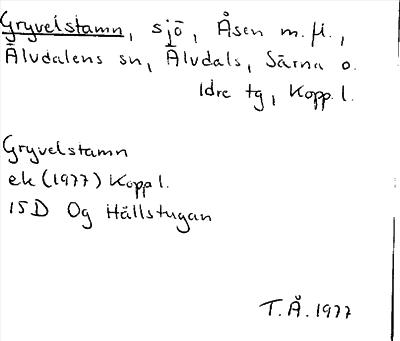 Gryvelstamn, sjö, Åsen m.fl.,
Älvdalens sn, Älvdals, Särna o.
Idre tg, Kopp.l.
Gryvelstamn
ek (1977) Kopp l.
15D Og Hällstugan
T.Å. 1977